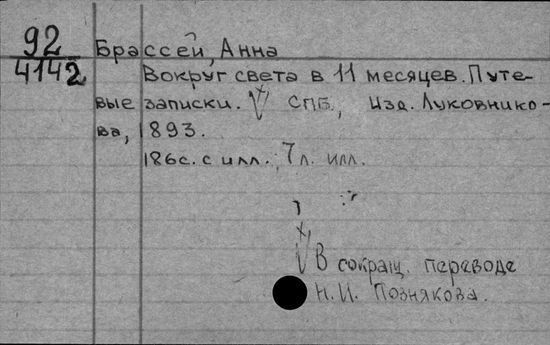 92
4142
Брассей, Анна
Вокруг света в 11 месяцев. Путе-
вые записки. СПБ., Изд. Луковнико-
ва, 1893.
186с. с илл.; 7л. илл.
В сокращ. переводе
Н.И. Познякова.